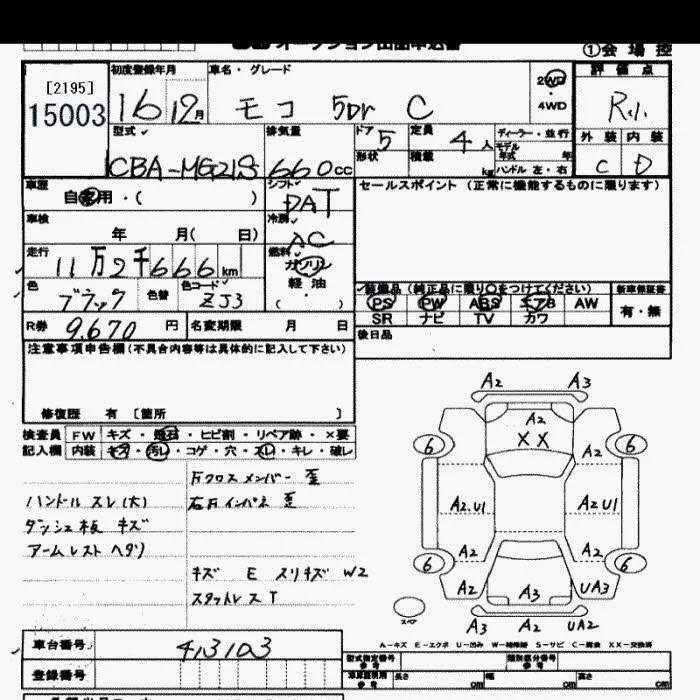 ①会場控
[2195]
15003
初度登録年月
16 12月
車名・グレード
モコ 5Dr C
2WD
4WD
評価点
R.1.
型式
CBA-MG21S
排気量
660cc
ドア 5
形状
定員 4人
積載 kg
ディーラー・並行
モデル年式 年
ハンドル 左・右
外装 内装
C D
車歴
自家用・( )
シフト
DAT
セールスポイント (正常に機能するものに限ります)
車検
年 月( 日)
冷房
AC
走行
11万2千666km
燃料
ガソリン
軽油
( )
色
ブラック
色替
色コード
ZJ3
装備品 (純正品に限り○をつけてください)
新車保証書
PS PW ABS エアB AW
有・無
SR ナビ TV カワ
R券 9,670円
名変期限 月 日
後日品
注意事項申告欄 (不具合内容等は具体的に記入して下さい)
修復歴 有 [箇所 ]
検査員 FW キズ・飛石・ヒビ割・リペア跡・×要
記入欄 内装 キズ・汚レ・コゲ・穴・スレ・キレ・破レ
ハンドル スレ(大)
ダッシュ板 キズ
アームレスト ヘタリ
Fクロスメンバー 歪
右Fインパネ 歪
キズ E スリキズ W2
スタットレスT
A2 A3
A2
XX
6 6
A2
A2.U1 A2U1
A2 A2
6 6
A2 A3 UA3
スペア
A3 A2 UA2
A-キズ E-エクボ U-凹み W-補修跡 S-サビ C-腐食 XX-交換済
車台番号 413103
登録番号
型式指定番号 参考
類別区分番号 参考
長さ cm 幅 cm 高さ cm